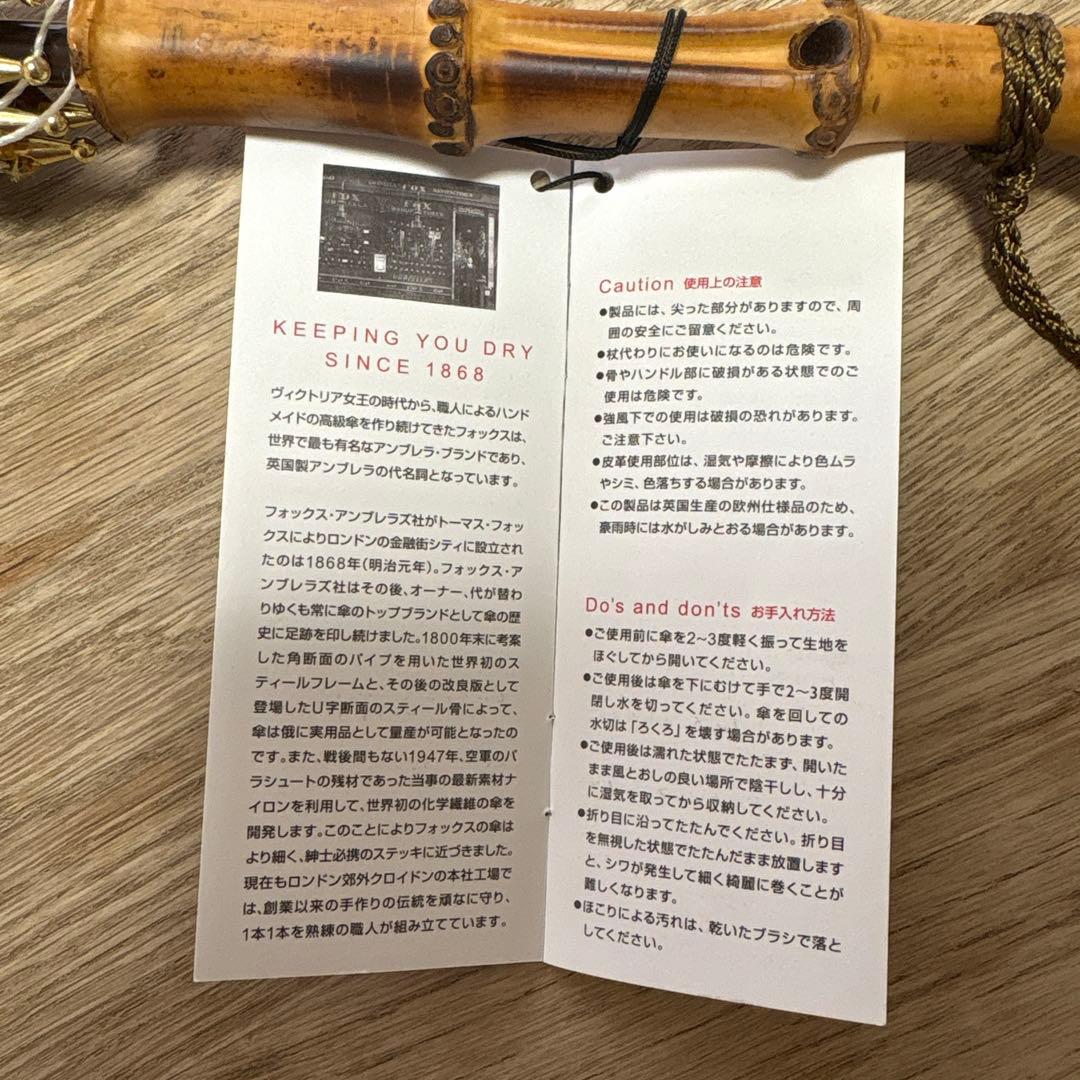 FOX
FOX
FOX
KEEPING YOU DRY
SINCE 1868
ヴィクトリア女王の時代から、職人によるハンド
メイドの高級傘を作り続けてきたフォックスは、
世界で最も有名なアンブレラ・ブランドであり、
英国製アンブレラの代名詞となっています。
フォックス・アンブレラズ社がトーマス・フォッ
クスによりロンドンの金融街シティに設立され
たのは1868年(明治元年)。フォックス・ア
ンブレラズ社はその後、オーナー、代が替わ
りゆくも常に傘のトップブランドとして傘の歴
史に足跡を印し続けました。1800年末に考案
した角断面のパイプを用いた世界初のス
ティールフレームと、その後の改良版として
登場したU字断面のスティール骨によって、
傘は俄に実用品として量産が可能となったの
です。また、戦後間もない1947年、空軍のパ
ラシュートの残材であった当事の最新素材ナ
イロンを利用して、世界初の化学繊維の傘を
開発します。このことによりフォックスの傘は
より細く、紳士必携のステッキに近づきました。
現在もロンドン郊外クロイドンの本社工場で
は、創業以来の手作りの伝統を頑なに守り、
1本1本を熟練の職人が組み立てています。
Caution 使用上の注意
●製品には、尖った部分がありますので、周
囲の安全にご留意ください。
●杖代わりにお使いになるのは危険です。
●骨やハンドル部に破損がある状態でのご
使用は危険です。
●強風下での使用は破損の恐れがあります。
ご注意下さい。
●皮革使用部位は、湿気や摩擦により色ムラ
やシミ、色落ちする場合があります。
●この製品は英国生産の欧州仕様品のため、
豪雨時には水がしみとおる場合があります。
Do's and don'ts お手入れ方法
●ご使用前に傘を2〜3度軽く振って生地を
ほぐしてから開いてください。
●ご使用後は傘を下にむけて手で2〜3度開
閉し水を切ってください。傘を回しての
水切は「ろくろ」を壊す場合があります。
●ご使用後は濡れた状態でたたまず、開いた
まま風とおしの良い場所で陰干しし、十分
に湿気を取ってから収納してください。
●折り目に沿ってたたんでください。折り目
を無視した状態でたたんだまま放置します
と、シワが発生して細く綺麗に巻くことが
難しくなります。
●ほこりによる汚れは、乾いたブラシで落と
してください。